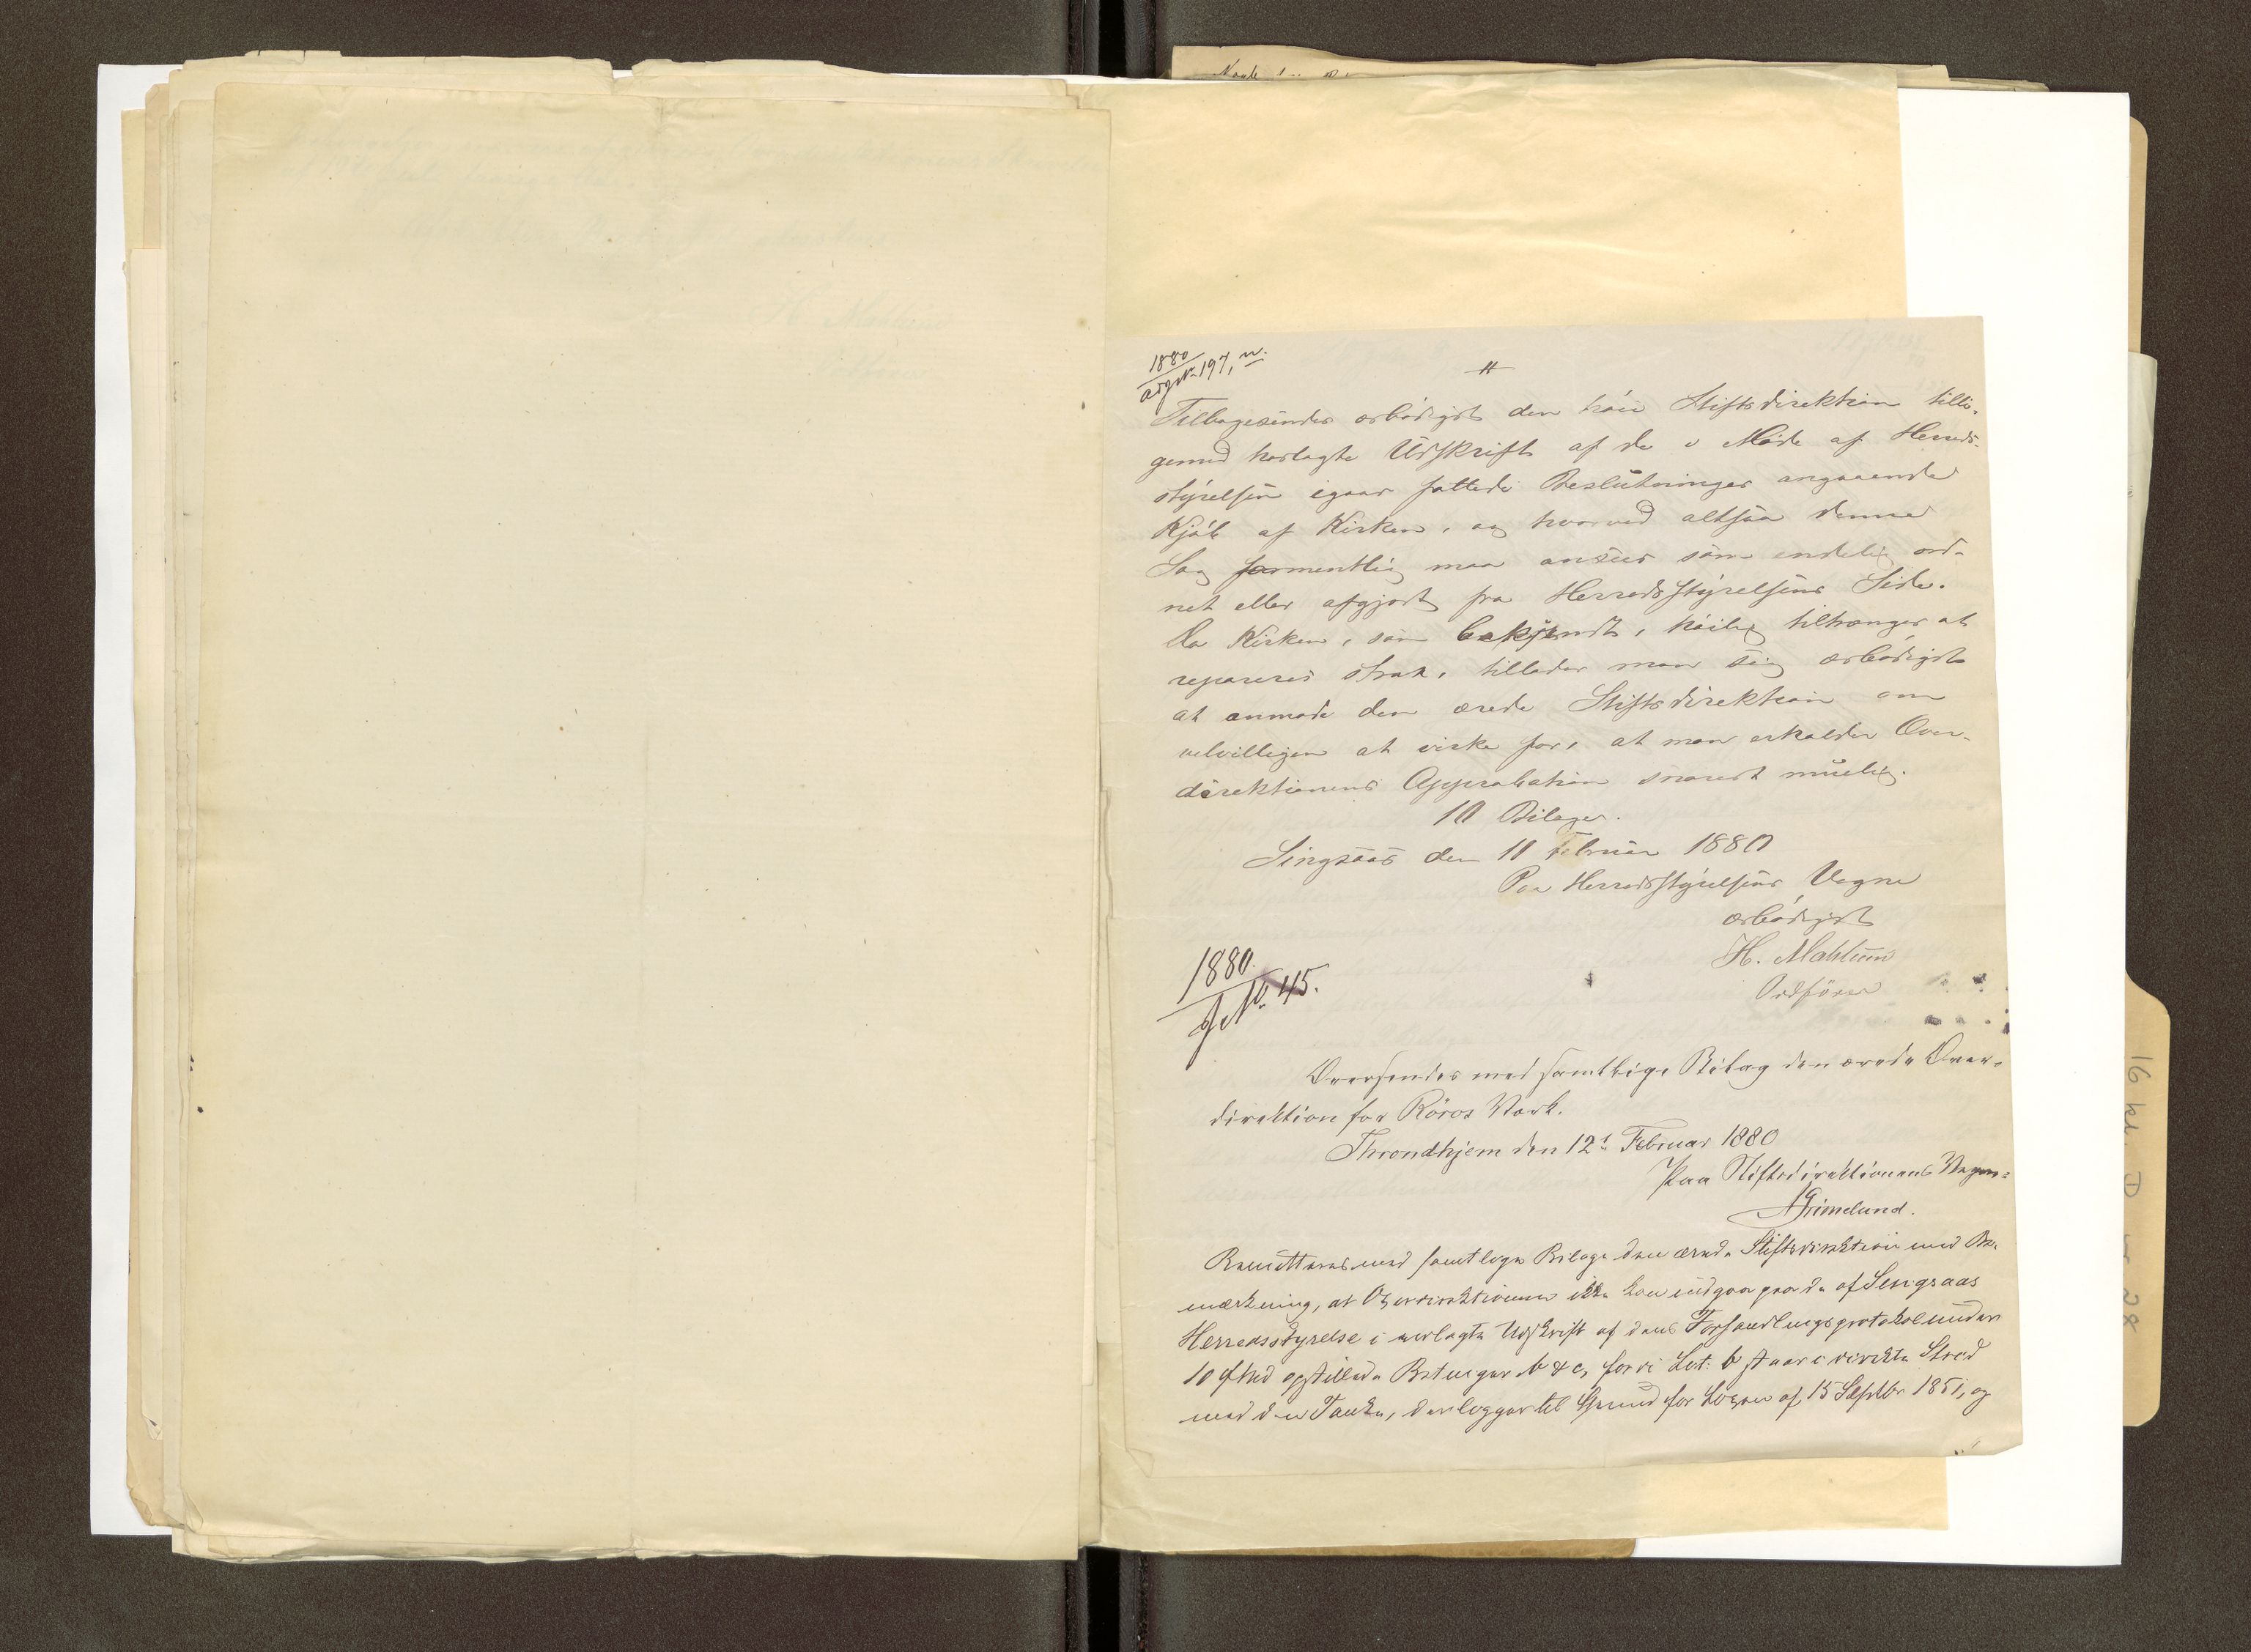 1880
Tilbagesendes ærbødigst den høie Stiftsdirektion tilli-
gemed hoslagte Udskrift af de i Møde af Herreds-
styrelsen igaar fattede Beslutninger angaaende
Kjøb af Kirken, og hvorved altsaa denne
Sag formentlig maa ansees som endelig ord-
net eller afgjort fra Herredsstyrelsens Side.
Da Kirken, som bekjendt, høilig tiltrænger at
repareres strax, tillader man sig ærbødigst
at anmode den ærede Stiftsdirektion om
velvilligen at virke for, at man erholder Over-
direktionens Approbation snarest muelig.
10 Bilager.
Singsaas den 11 Februar 1880
Paa Herredsstyrelsens Vegne
ærbødigst
H. Mahlum
Ordfører
1880.
No. 45.
Oversendes med samtlige Bilag den ærede Over-
direktion for Røros Værk.
Throndhjem den 12te Februar 1880
Paa Stiftsdirektionens Vegne:
Grimelund.
Remitteres med samtlige Bilage den ærede Stiftsdirektion med Be-
mærkning, at Overdirektionen ikke kan indgaa paa de af Singsaas
Herredsstyrelse i vedlagte Udskrift af dens Forhandlingsprotokol under
10 ds opstillede Betingelser b & c, fordi Lit: b staar i direkte Strid
med den Tanke, der ligger til Grund for Loven af 15 Septbr 1851, og
16 kl. D
28